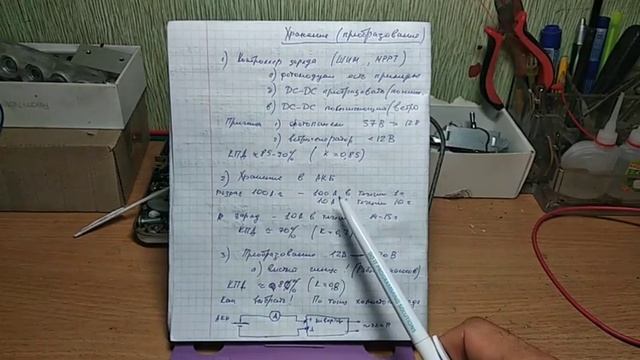 Хранение (преобразование)
1) Контролер заряда (ШИМ, MPPT)
а) фотомодули есть примеры
б) DC-DC преобразователь (пониж.
в) DC-DC повышающий (ветро
Причина 1) фотопанели 37В → 12В
2) ветрогенератор < 12В
КПД ≈ 85-90% (к = 0,85)
2) Хранение в АКБ
разряд 100А·ч - 100А в течении 1ч
10А в течении 10ч
заряд - 10А в течении 14-15ч
КПД ≈ 70% (к = 0,7
3) Преобразование 12В
а) чистый синус!
КПД ≈ 80% (к = 0,8)
Как выбрать! По току холостого хода
АКБ
A